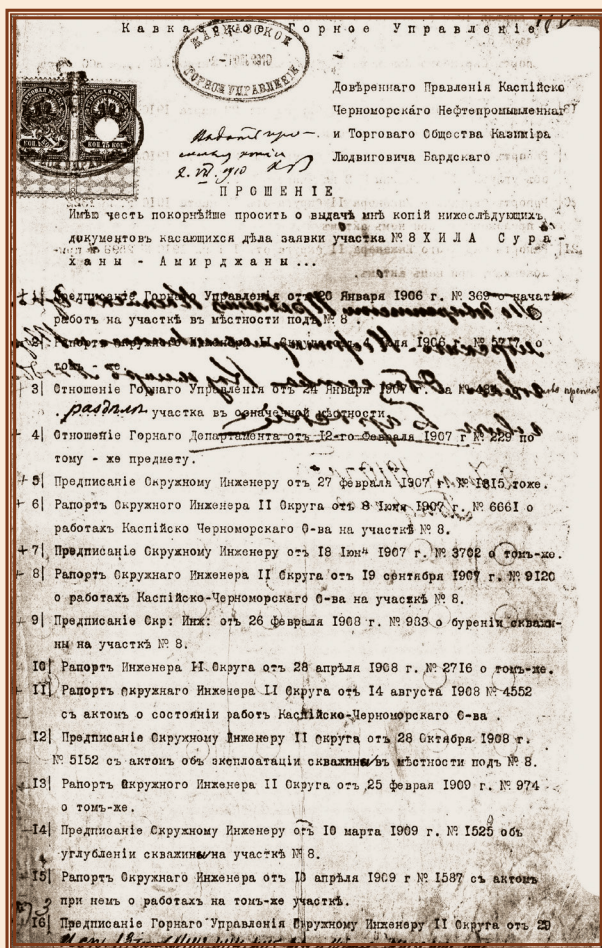 Кавказское Горное Управленіе
КАВКАЗСКОЕ
ГОРНОЕ УПРАВЛЕНІЕ
Довѣреннаго Правленія Каспійско
Черноморскаго Нефтепромышленнаго
и Торговаго Общества Казиміра
Людвиговича Бардскаго
2. VII. 1910
ПРОШЕНІЕ
Имѣю честь покорнѣйше просить о выдачѣ мнѣ копій нижеслѣдующихъ
документовъ касающихся дѣла заявки участка № 8 ХИЛА Сура-
ханы - Амирджаны...
1| Предписаніе Горнаго Управленія отъ 20 Января 1906 г. № 369 о начатіи
работъ на участкѣ въ мѣстности подъ № 8
2| 1906 г. № 5717 о
томъ
3 Отношеніе Горнаго Управленія отъ 24 Января 1907 г. за №
раздѣлъ участка въ означенной мѣстности.
4| Отношеніе Горнаго Департамента отъ 12-го Февраля 1907 г № 229 по
тому - же предмету.
5| Предписаніе Окружному Инженеру отъ 27 февраля 1907 г. № 1815 тоже.
6| Рапортъ Окружного Инженера II Округа отъ 8 Іюня 1907 г. № 6661 о
работахъ Каспійско Черноморскаго О-ва на участкѣ № 8.
+7| Предписаніе Окружному Инженеру отъ 18 Іюн 1907 г. № 3702 о томъ-же.
8| Рапортъ Окружнаго Инженера II Округа отъ 19 сентября 1907 г. № 9120
о работахъ Каспійско-Черноморскаго О-ва на участкѣ № 8.
9| Предписаніе Окр: Инж: отъ 26 февраля 1908 г. № 983 о буреніи скважи-
ны на участкѣ № 8.
10| Рапортъ Инженера II Округа отъ 28 апрѣля 1908 г. № 2716 о томъ-же.
11| Рапортъ Окружнаго Инженера II Округа отъ 14 августа 1908 № 4552
съ актомъ о состояніи работ Каспійско-Черноморскаго О-ва .
12| Предписаніе Окружному Инженеру II округа отъ 28 Октября 1908 г.
№ 5152 съ актомъ объ эксплоатаціи скважины въ мѣстности подъ № 8.
13| Рапортъ Окружного Инженера II Округа отъ 25 феврая 1909 г. № 974
о томъ-же.
14| Предписаніе Окружному Инженеру отъ 10 марта 1909 г. № 1525 объ
углубленіи скважины на участкѣ № 8.
15| Рапортъ Окружнаго Инженера отъ 10 апрѣля 1909 г № 1587 съ актомъ
при немъ о работахъ на томъ-же участкѣ.
16| Предписаніе Горнаго Управленія Окружному Инженеру II Округа отъ 29